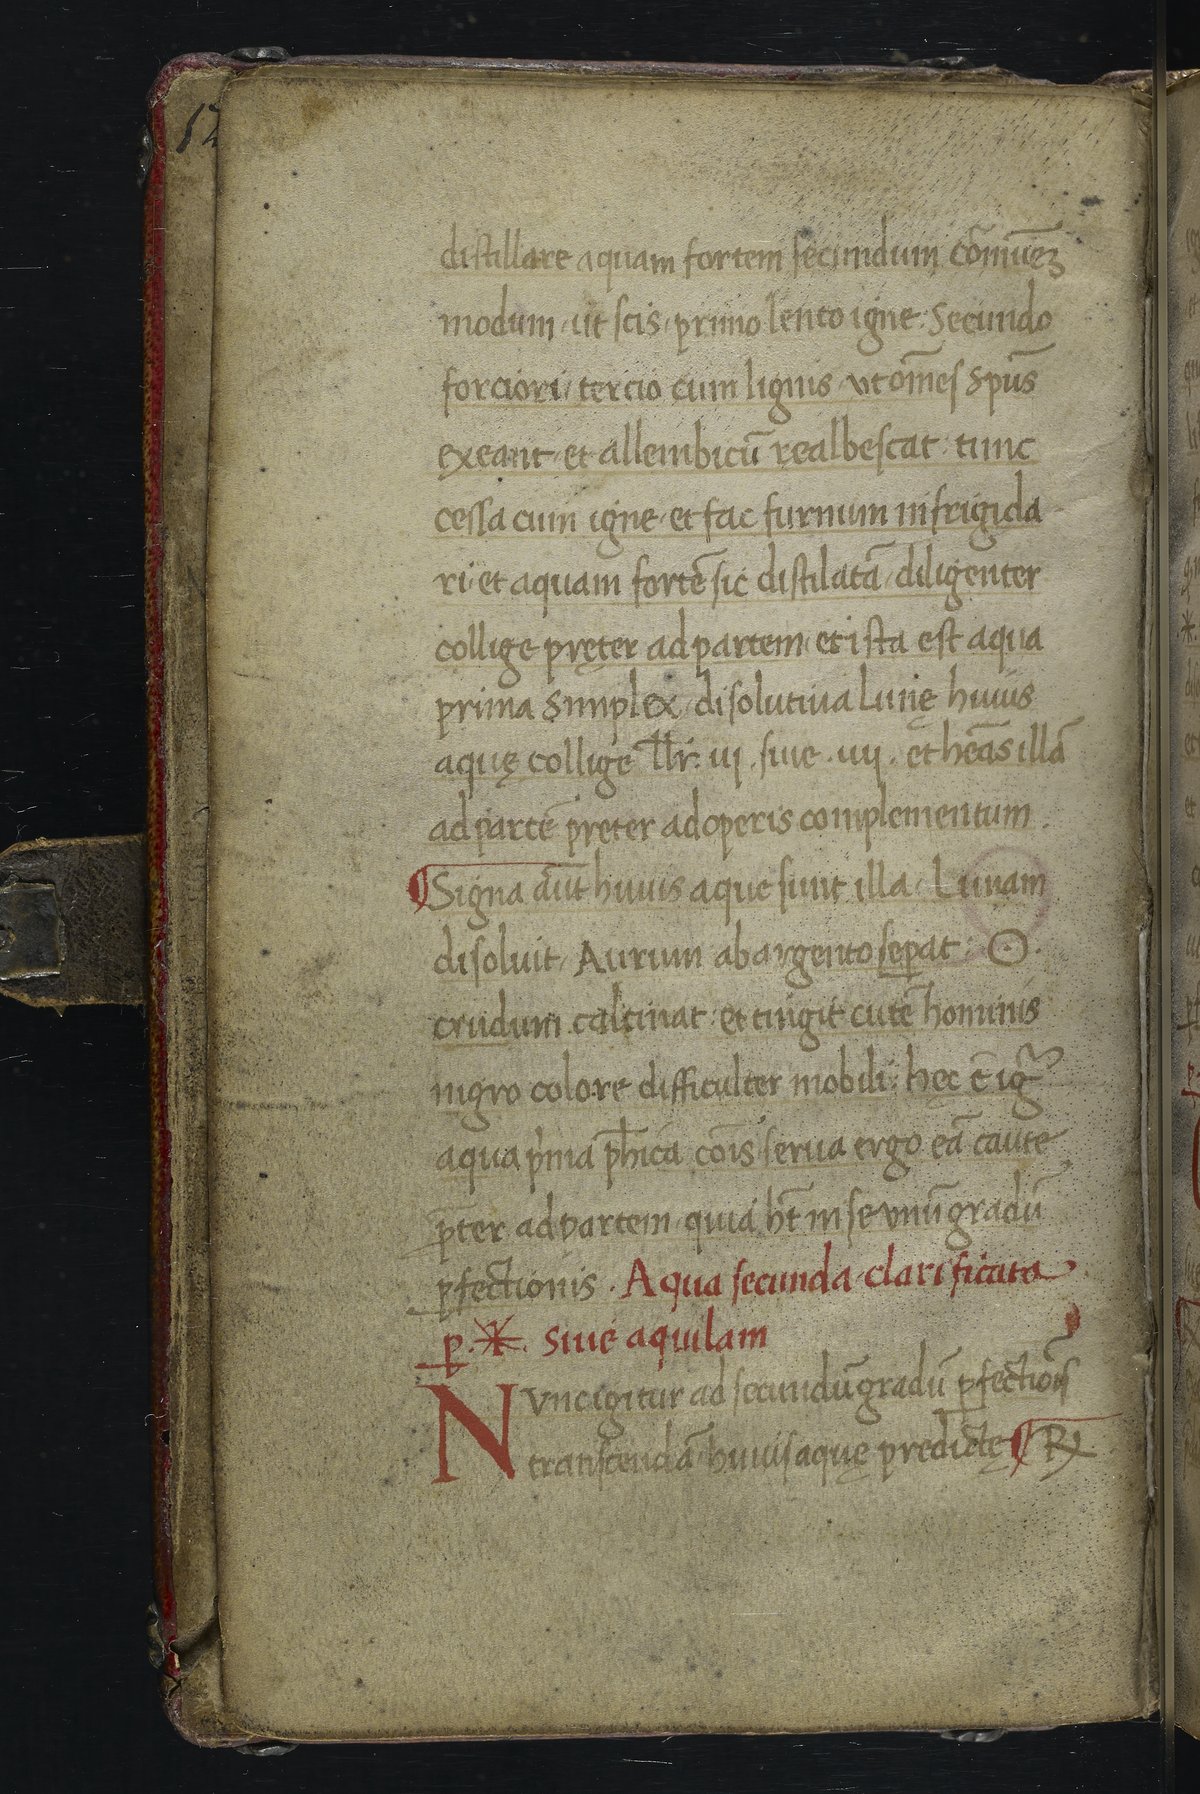 12
distillare aquam fortem secundum cōmuēʒ
modum · ut scis · primo lento igne · Secundo
forciori · tercio cum lignis · vt om̄es sp̄us
exeant · et allembicū realbescat · tunc
cessa cum igne · et fac furnum infrigida
ri · et aquam fortē sic distilatā · diligenter
collige pręter ad partem · et ista est aqua
prima Simplex · disolutiua Lunę huius
aquę collige llr̄. vj . siue . vij . et heās illā
ad partē preter ad operis complementum .
¶ Signa aūt huius aque sunt illa · Lunam
disoluit · Aurum ab argento seꝑat · ☉ .
crudum calcinat · et tingit cutē hominis
nigro colore difficulter mobili · hęc ē ig̃
aqua p̄ma ph̄ica cōis · serua ergo eā caute
p̄ter ad partem · quia ht̄ in se vnū gradū
ꝑfectionis . Aqua secunda clarificata
ꝑ . * . Siue aquilam
Nvnc igitur ad secundū gradū ꝑfectiōis
transcendā · huius aquę predictę ¶ ℞